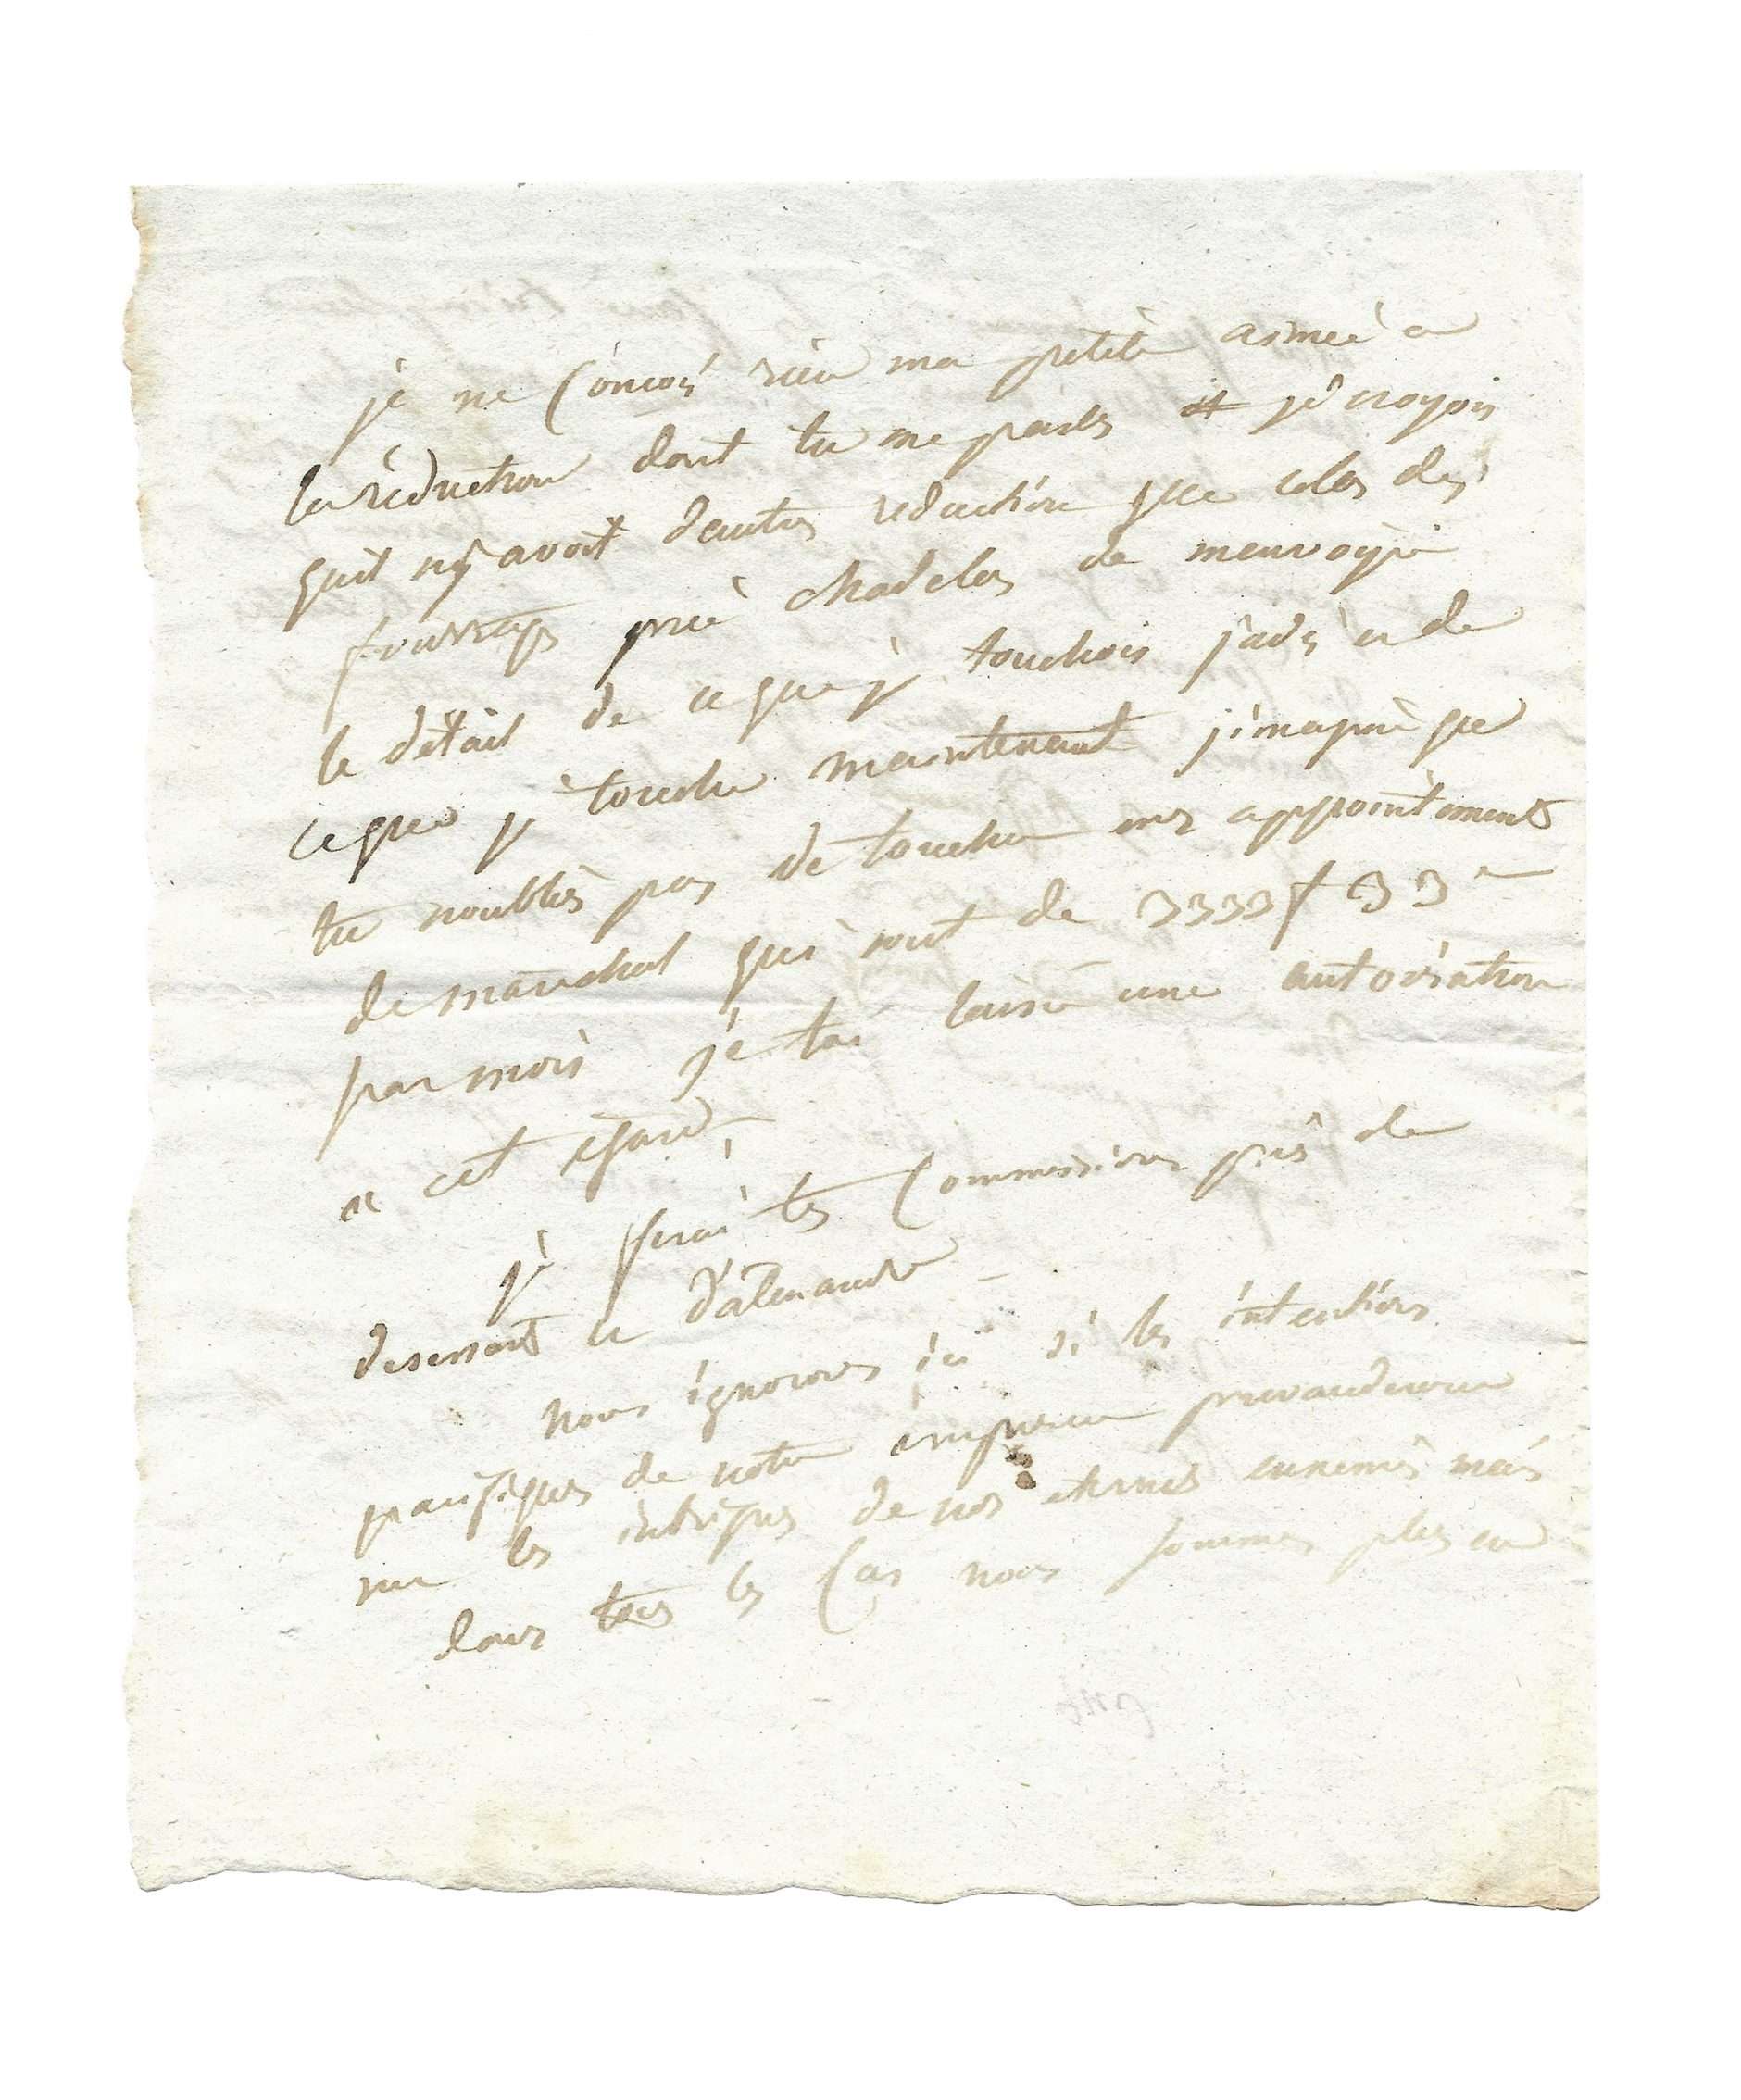 je ne conçoi rien ma petite aimée a
la réduction dont tu me parles je croyois
quil ny avoit dautres reduction que celes des
fourrages prie chadelas de menvoyé
le détail de ce que je touchois jadis et de
ceque je touche maintenant jimagine que
tu noublies pas de toucher mes appointements
de marechal qui sont de 3333f 33c
par mois je tai laissé une autorisation
a cet égard
je ferai tes commissions près de
desessart et dalenandre
nous ignorons ici si les intentions
pacifiques de notre empereur prevauderont
sur les intrigues de nos eternels ennemis mais
dans tous les cas nous sommes plus en